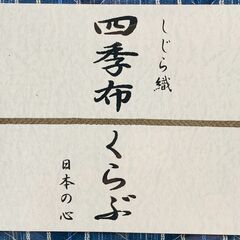 しじら織
四季布くらぶ
日本の心